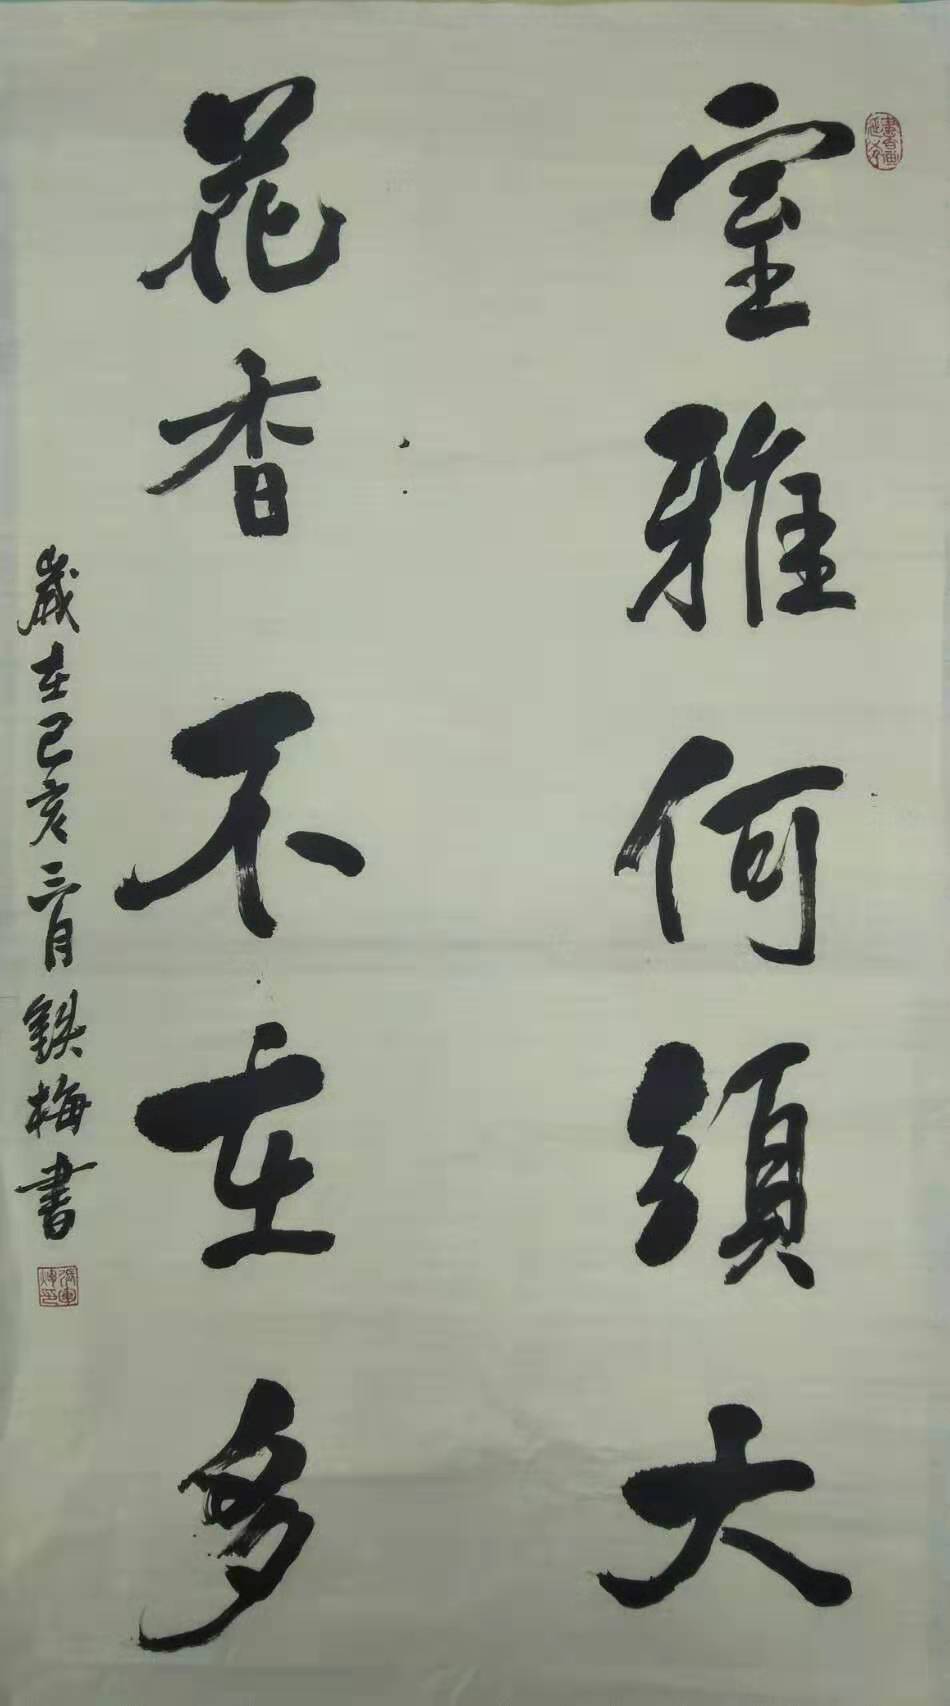 室雅何須大
花香不在多
歲在己亥三月鐵梅書